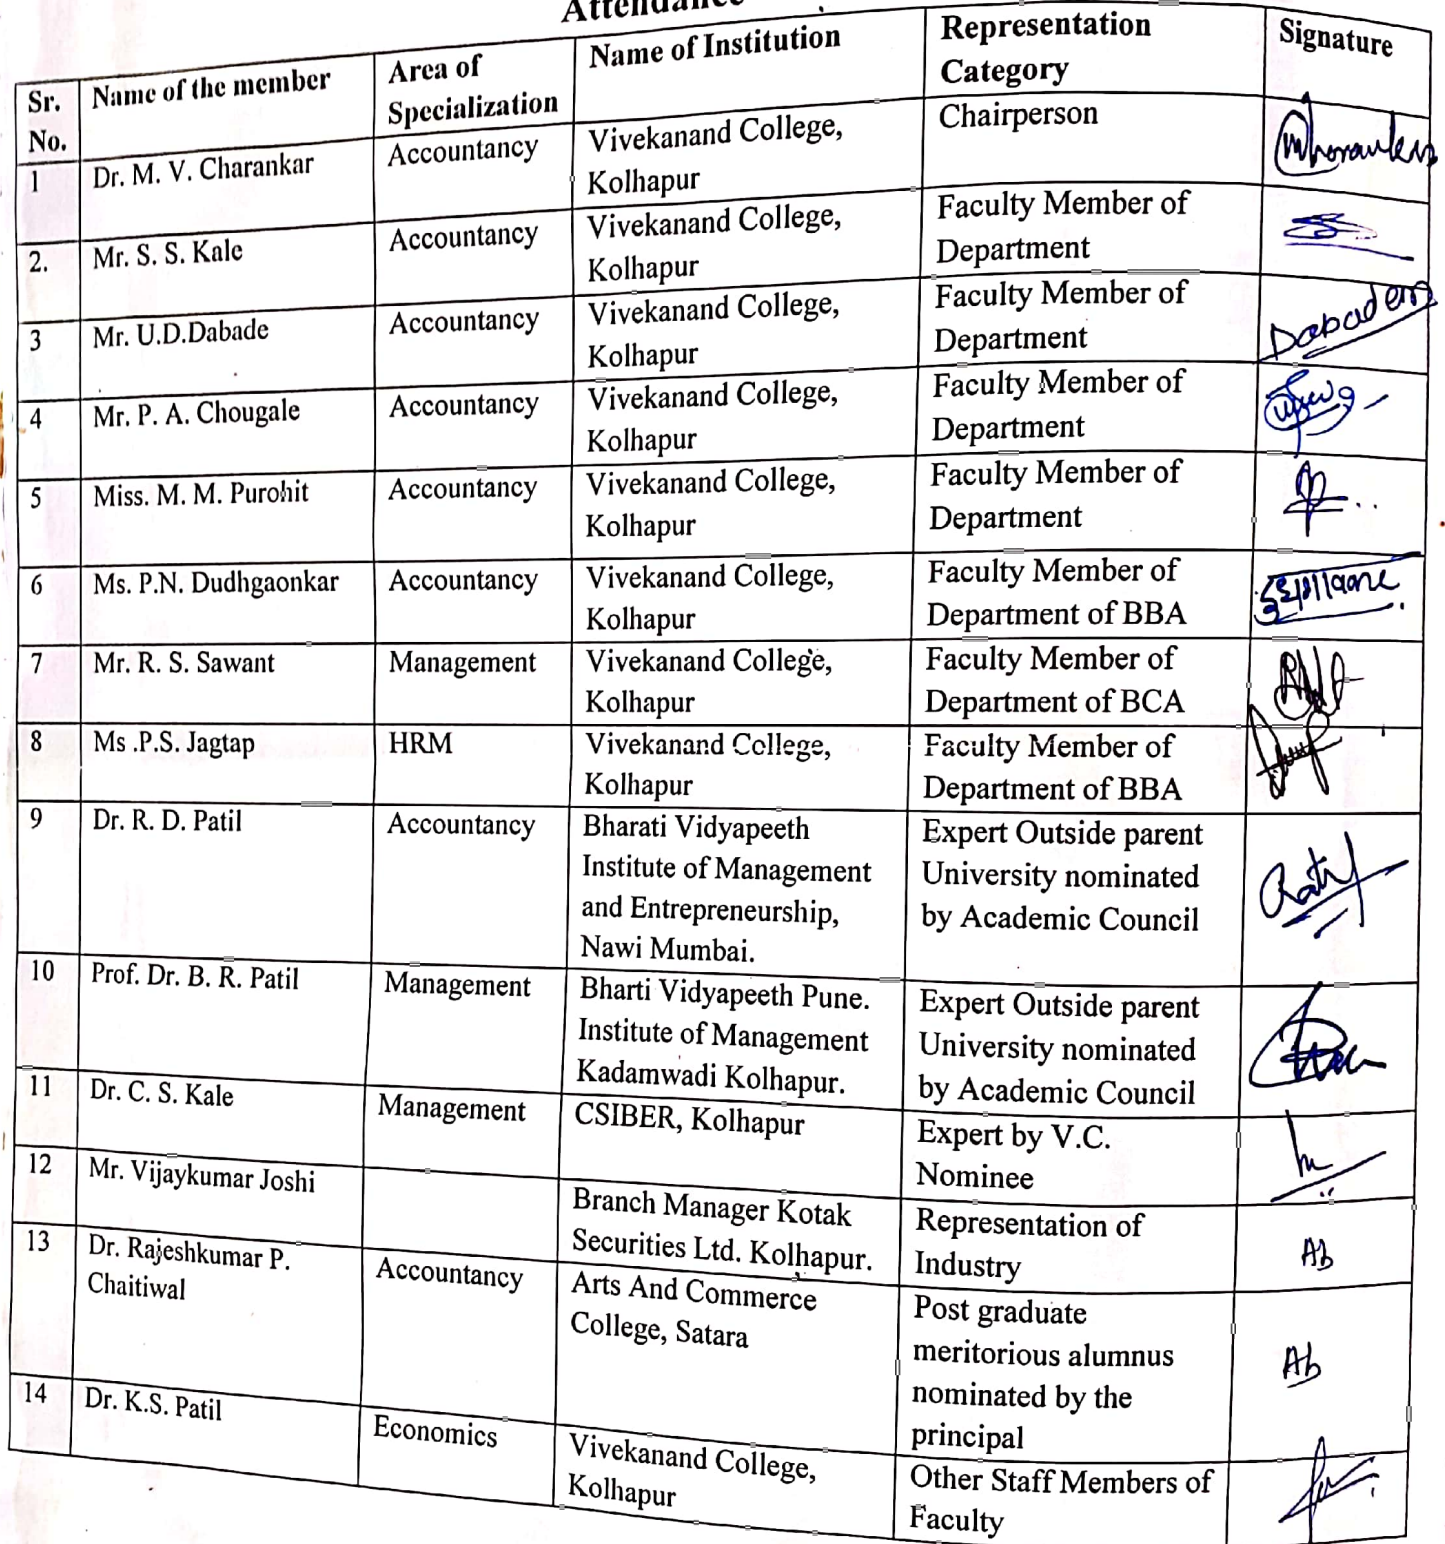 Attendance
Sr. No. Name of the member Area of Specialization Name of Institution Representation Category Signature
1 Dr. M. V. Charankar Accountancy Vivekanand College, Kolhapur Chairperson
2. Mr. S. S. Kale Accountancy Vivekanand College, Kolhapur Faculty Member of Department
3 Mr. U.D.Dabade Accountancy Vivekanand College, Kolhapur Faculty Member of Department
4 Mr. P. A. Chougale Accountancy Vivekanand College, Kolhapur Faculty Member of Department
5 Miss. M. M. Purohit Accountancy Vivekanand College, Kolhapur Faculty Member of Department
6 Ms. P.N. Dudhgaonkar Accountancy Vivekanand College, Kolhapur Faculty Member of Department of BBA
7 Mr. R. S. Sawant Management Vivekanand College, Kolhapur Faculty Member of Department of BCA
8 Ms .P.S. Jagtap HRM Vivekanand College, Kolhapur Faculty Member of Department of BBA
9 Dr. R. D. Patil Accountancy Bharati Vidyapeeth Institute of Management and Entrepreneurship, Nawi Mumbai. Expert Outside parent University nominated by Academic Council
10 Prof. Dr. B. R. Patil Management Bharti Vidyapeeth Pune. Institute of Management Kadamwadi Kolhapur. Expert Outside parent University nominated by Academic Council
11 Dr. C. S. Kale Management CSIBER, Kolhapur Expert by V.C. Nominee
12 Mr. Vijaykumar Joshi Branch Manager Kotak Securities Ltd. Kolhapur. Representation of Industry Ab
13 Dr. Rajeshkumar P. Chaitiwal Accountancy Arts And Commerce College, Satara Post graduate meritorious alumnus nominated by the principal Ab
14 Dr. K.S. Patil Economics Vivekanand College, Kolhapur Other Staff Members of Faculty